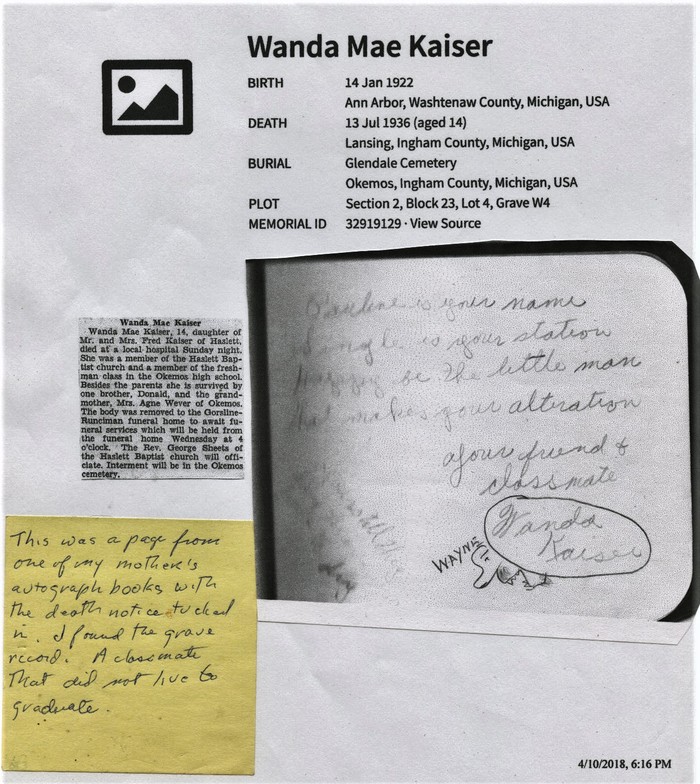 Wanda Mae Kaiser
BIRTH 14 Jan 1922
Ann Arbor, Washtenaw County, Michigan, USA
DEATH 13 Jul 1936 (aged 14)
Lansing, Ingham County, Michigan, USA
BURIAL Glendale Cemetery
Okemos, Ingham County, Michigan, USA
PLOT Section 2, Block 23, Lot 4, Grave W4
MEMORIAL ID 32919129 · View Source
Wanda Mae Kaiser
Wanda Mae Kaiser, 14, daughter of
Mr. and Mrs. Fred Kaiser of Haslett,
died at a local hospital Sunday night.
She was a member of the Haslett Bap-
tist church and a member of the fresh-
man class in the Okemos high school.
Besides the parents she is survived by
one brother, Donald, and the grand-
mother, Mrs. Agne Wever of Okemos.
The body was removed to the Gorsline-
Runciman funeral home to await fu-
neral services which will be held from
the funeral home Wednesday at 4
o'clock. The Rev. George Sheets of
the Haslett Baptist church will offi-
ciate. Interment will be in the Okemos
cemetery.
Pauline is your name
is your station
be the little man
makes your alteration
your friend &
classmate
Wanda
Kaiser
WAYNE
This was a page from
one of my mother's
autograph books with
the death notice tucked
in. I found the grave
record. A classmate
That did not live to
graduate.
4/10/2018, 6:16 PM